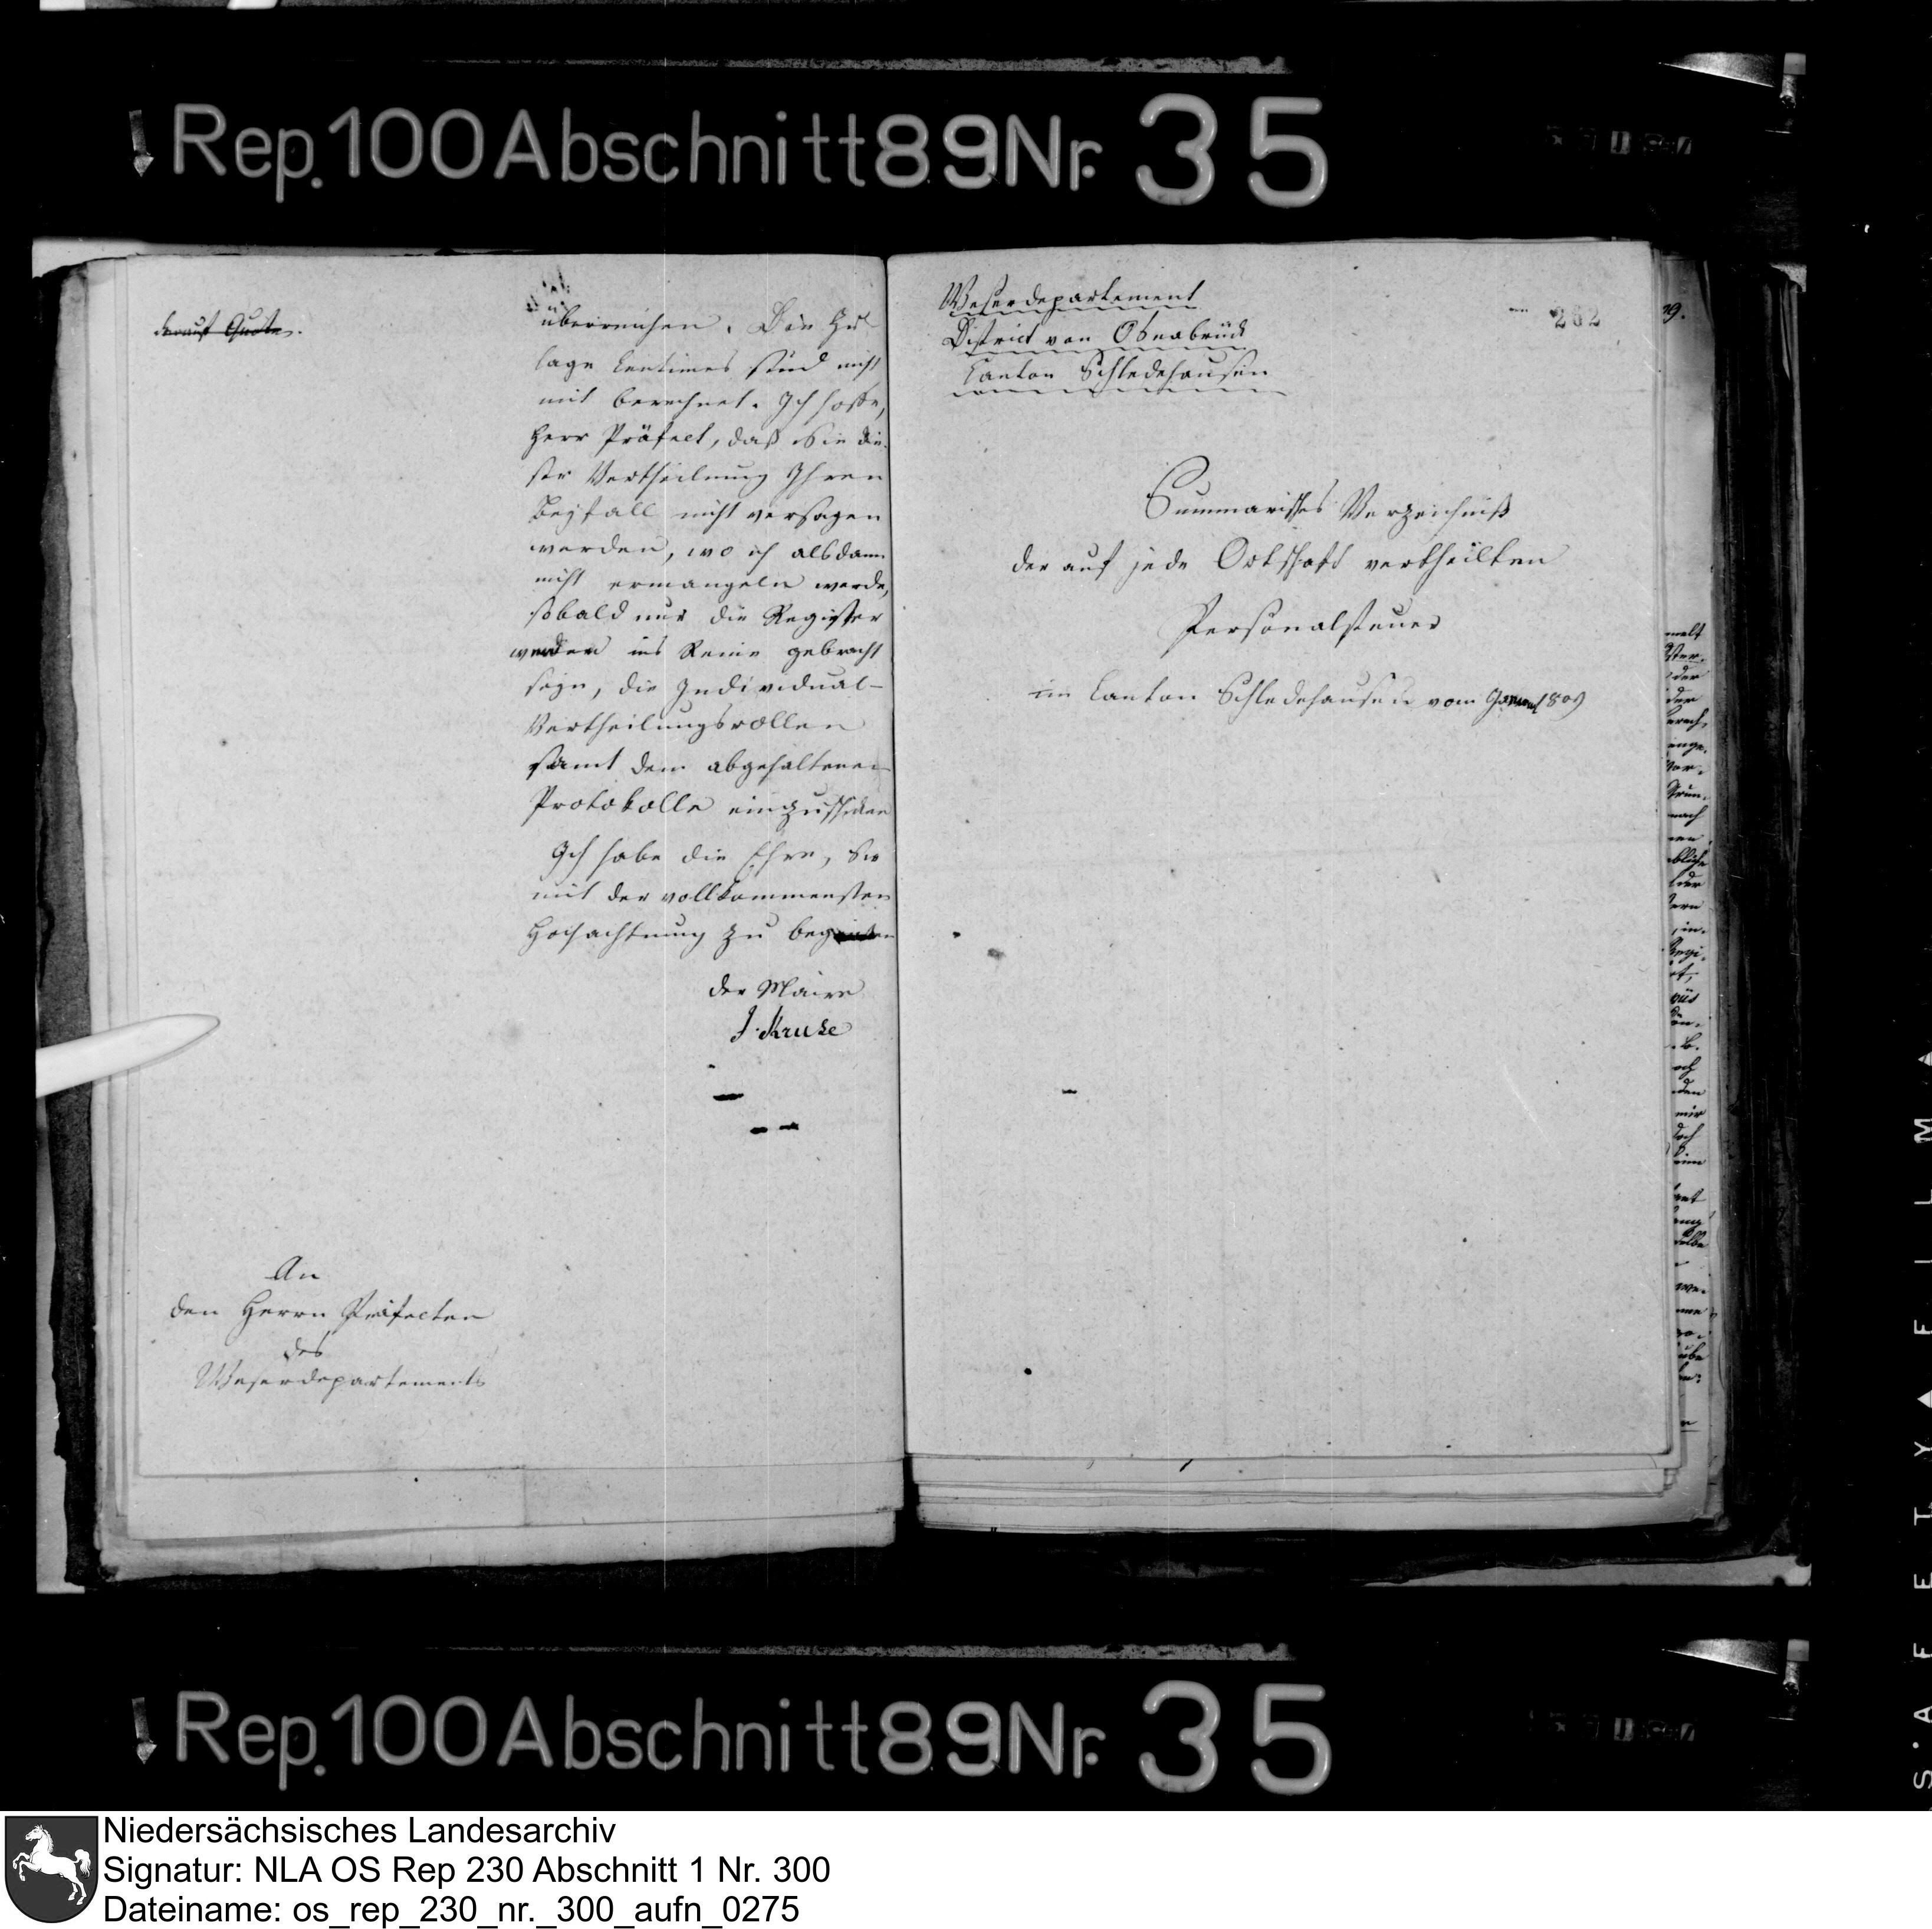 Rep. 100 Abschnitt 89 Nr. 35
darauf Quote.
überreichen. Die Zu
lage Centimes sind nicht
mit berechnet. Ich hoffe,
Herr Präfect, daß Sie die-
ser Vertheilung Ihren
Beyfall nicht versagen
werden, wo ich alsdann
nicht ermangeln werde,
sobald nur die Register
werden ins Reine gebracht
seyn, die Individual-
Vertheilungsrollen
samt dem abgehaltenen
Protokolle einzuschicken
Ich habe die Ehre, Sie
mit der vollkommensten
Hochachtung zu
der Maire
J. Kruse
An
den Herrn Präfecten
des
Weserdepartements
Weserdepartement
District von Osnabrück
Canton Schledehausen
262
Summarisches Verzeichniß
der auf jede Ortschaft vertheilten
Personalsteuer
im Canton Schledehausen vom 1809
Rep. 100 Abschnitt 89 Nr. 35
Niedersächsisches Landesarchiv
Signatur: NLA OS Rep 230 Abschnitt 1 Nr. 300
Dateiname: os_rep_230_nr._300_aufn_0275